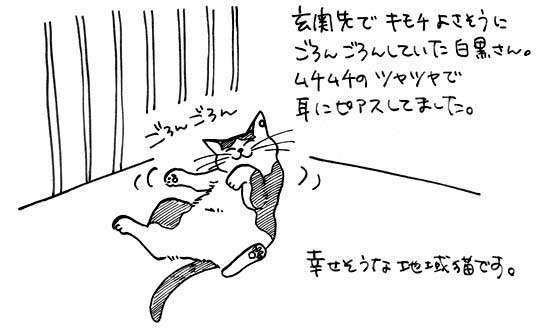 玄関先で キモチよさそうに
ごろんごろんしていた 白黒さん。
ムチムチの ツヤツヤで
耳にピアスしてました。
ごろんごろん
幸せそうな 地域猫です。